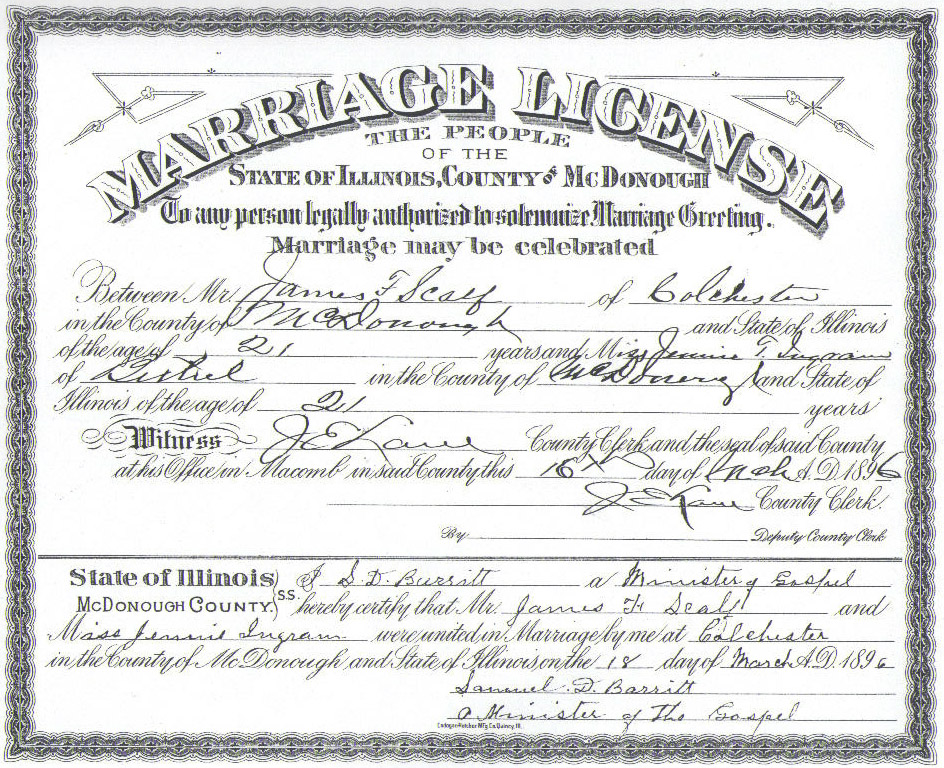 MARRIAGE LICENSE
THE PEOPLE
OF THE
STATE OF ILLINOIS, COUNTY OF MCDONOUGH
To any person legally authorized to solemnize Marriage Greeting.
Marriage may be celebrated
Between Mr. James F Scalf of Colchester
in the County of McDonough and State of Illinois
of the age of 21 years and Miss Jennie T. Ingram
of Bethel in the County of McDonough and State of
Illinois of the age of 21 years
Witness J E Kane County Clerk and the seal of said County
at his Office in Macomb in said County this 16th day of Mch A.D. 1896
J E Kane County Clerk.
By Deputy County Clerk
State of Illinois I S. D. Burritt a Minister of Gospel
MCDONOUGH COUNTY. S.S. hereby certify that Mr. James F Scalf and
Miss Jennie Ingram were united in Marriage by me at Colchester
in the County of McDonough and State of Illinois on the 18 day of March A.D. 1896
Samuel. D. Barritt
a Minister of The Gospel
Mfg. Co. Quincy, Ill.